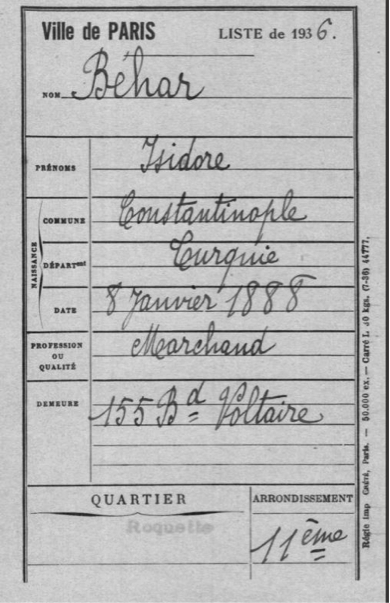 Ville de PARIS LISTE de 1936.
NOM Béhar
PRÉNOMS Isidore
NAISSANCE
COMMUNE Constantinople
DÉPARTent Turquie
DATE 8 Janvier 1888
PROFESSION
OU
QUALITÉ
Marchand
DEMEURE 155 Bd Voltaire
QUARTIER ARRONDISSEMENT
Roquette
11ème
Régie imp Carré, Paris. — 50.000 ex. — Carré L 30 kgs. (7-36) 44777.